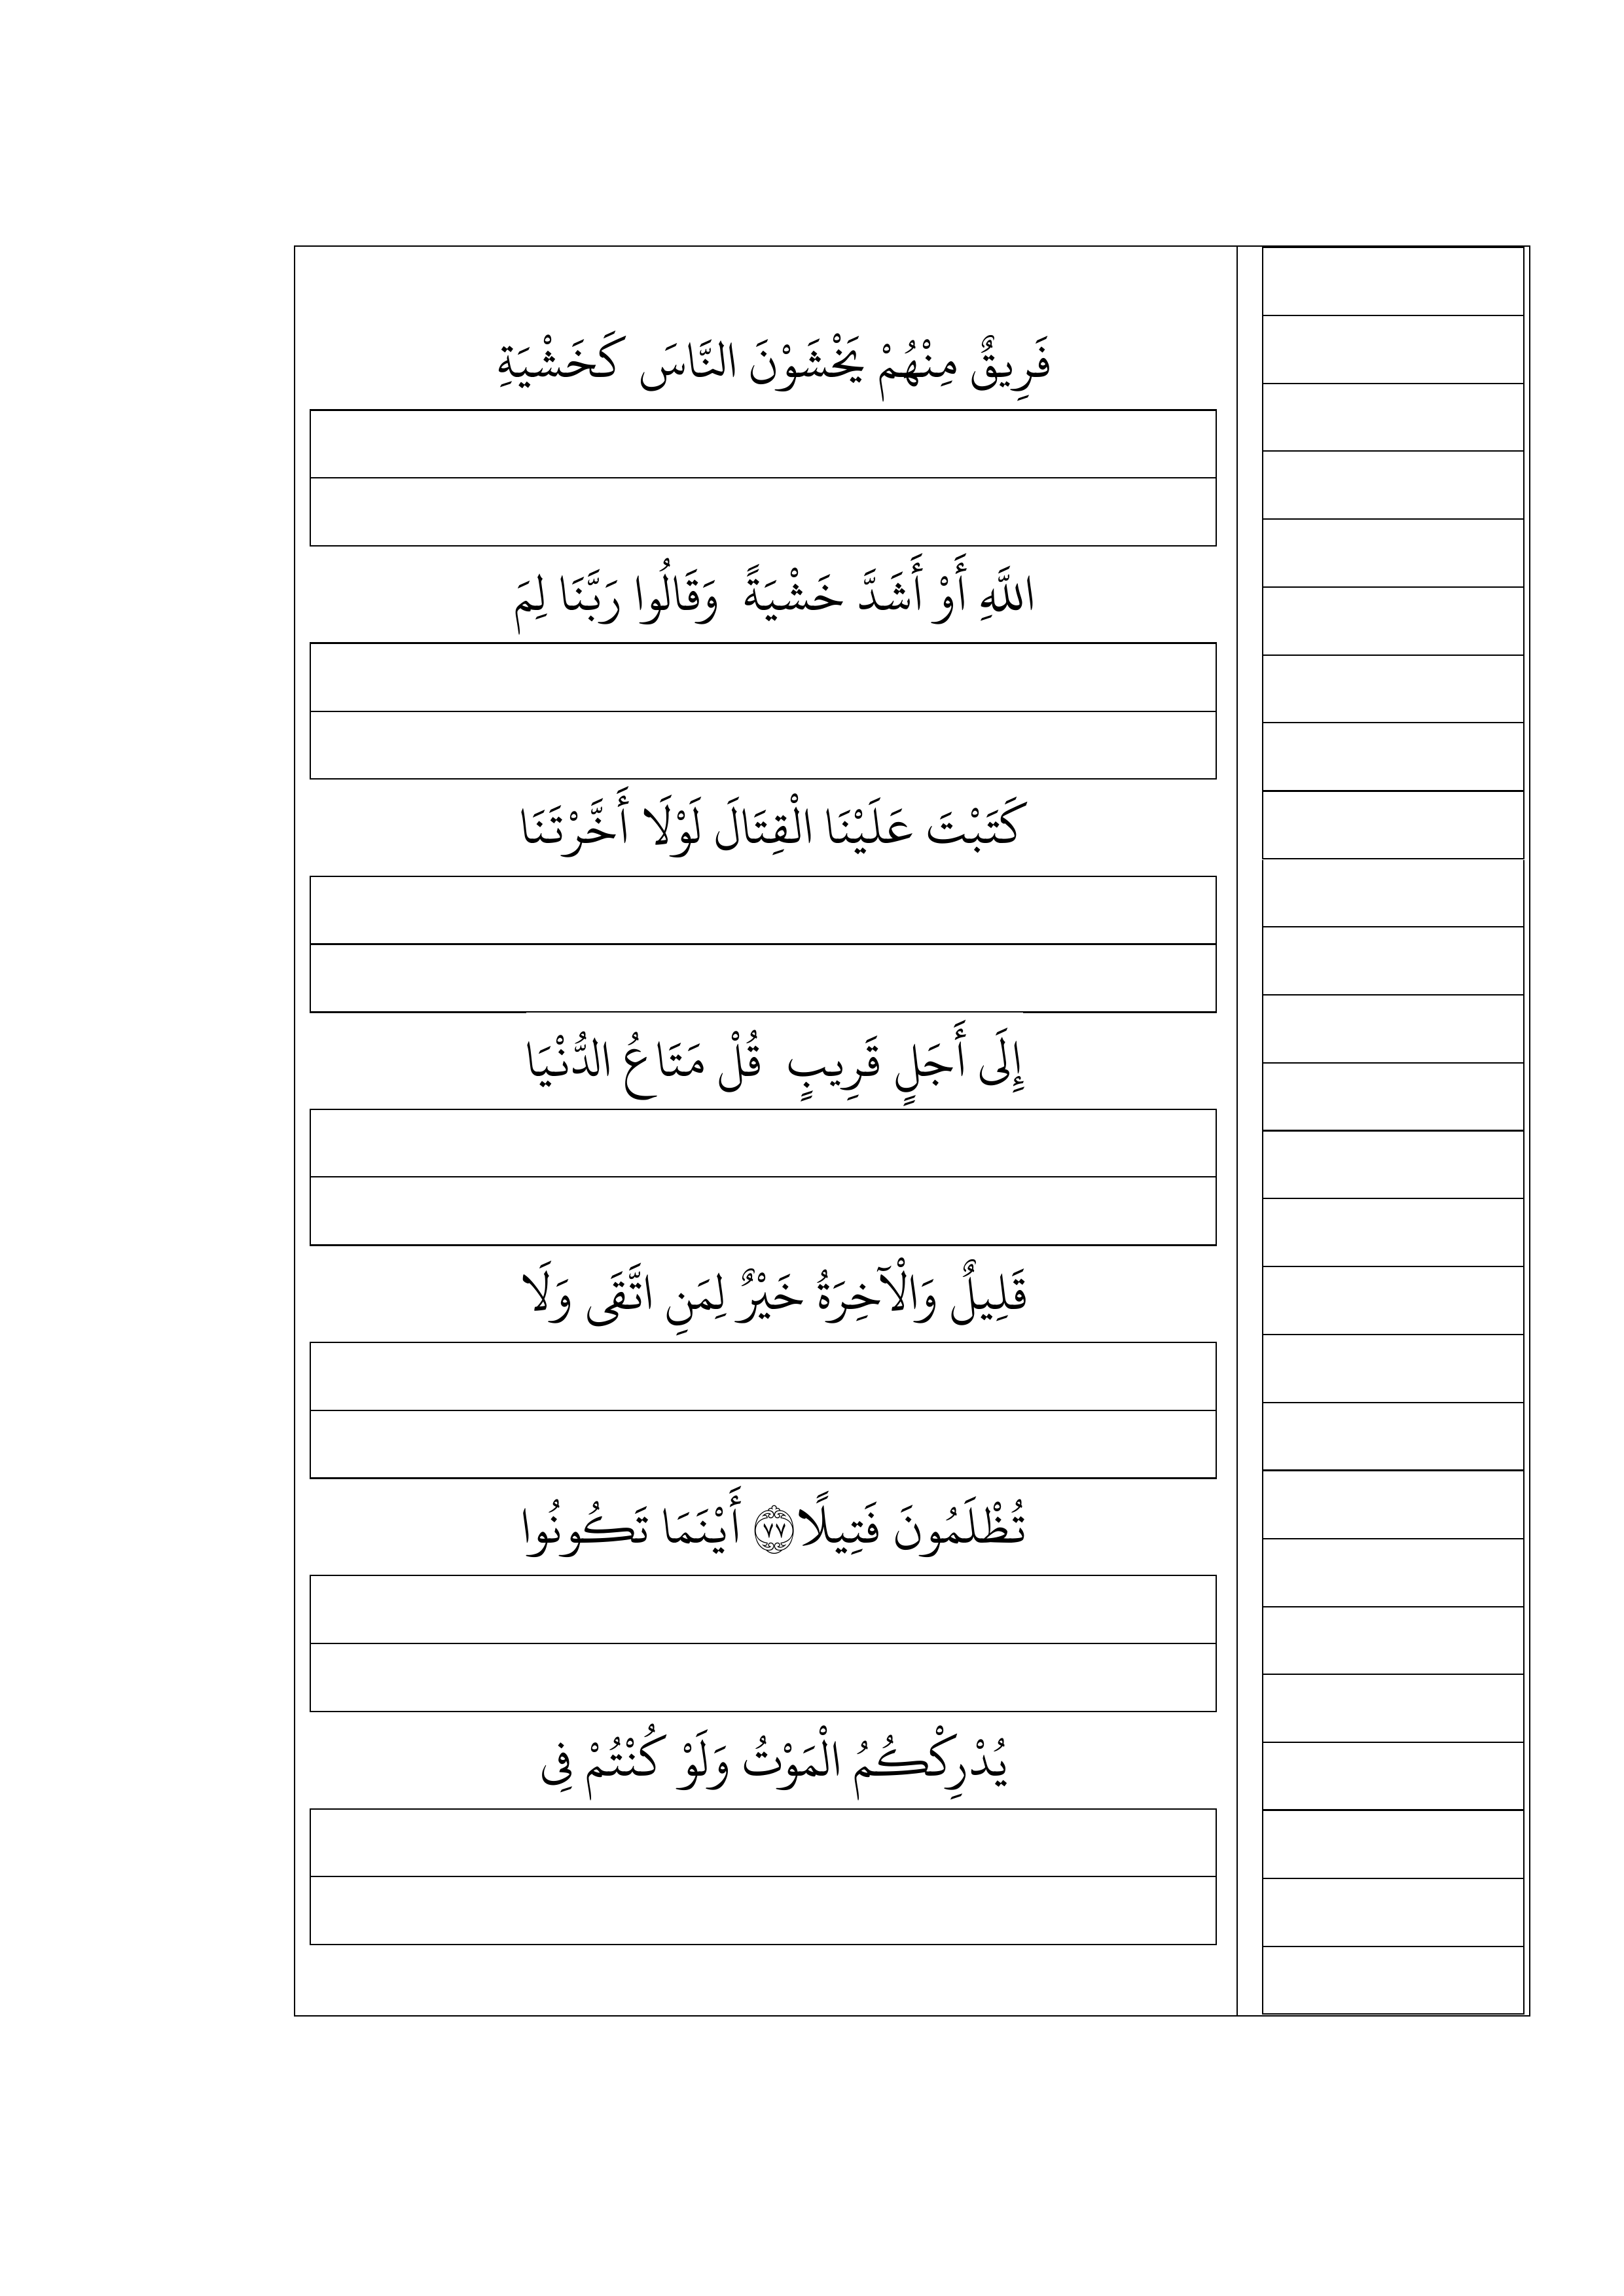 فَرِيقٌ مِنْهُمْ يَخْشَوْنَ النَّاسَ كَخَشْيَةِ
اللَّهِ أَوْ أَشَدَّ خَشْيَةً وَقَالُوا رَبَّنَا لِمَ
كَتَبْتَ عَلَيْنَا الْقِتَالَ لَوْلَا أَخَّرْتَنَا
إِلَى أَجَلٍ قَرِيبٍ قُلْ مَتَاعُ الدُّنْيَا
قَلِيلٌ وَالْآخِرَةُ خَيْرٌ لِمَنِ اتَّقَى وَلَا
تُظْلَمُونَ فَتِيلًا ﴿٧٧﴾ أَيْنَمَا تَكُونُوا
يُدْرِكْكُمُ الْمَوْتُ وَلَوْ كُنْتُمْ فِي